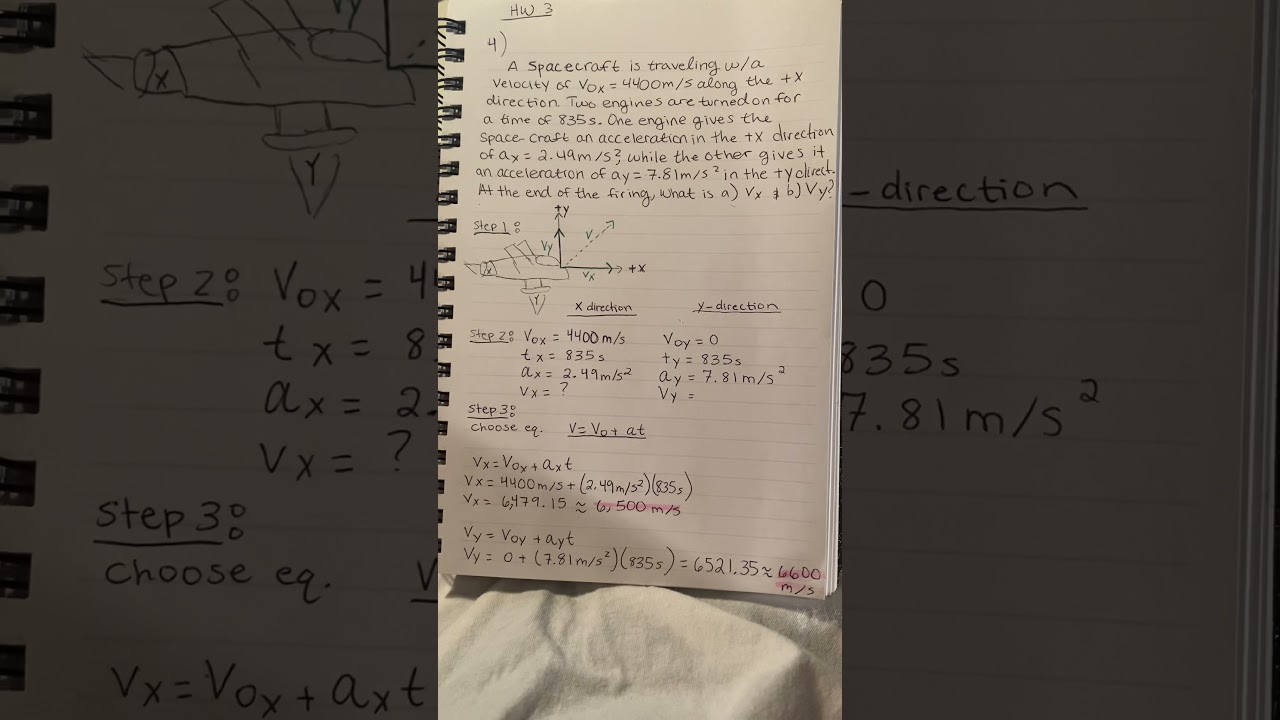 HW 3
4)
A Spacecraft is traveling w/a
velocity of Vox = 4400m/s along the +X
direction. Two engines are turned on for
a time of 835s. One engine gives the
space-craft an acceleration in the +X direction
of ax = 2.49m/s², while the other gives it
an acceleration of ay = 7.81m/s² in the +y direct.
At the end of the firing, what is a) Vx & b) Vy?
Step 1:
+y
Vy
V
X
Vx
+X
Y
X direction
y-direction
Step 2: Vox = 4400 m/s
Voy = 0
tx = 835s
ty = 835s
ax = 2.49m/s²
ay = 7.81m/s²
Vx = ?
Vy =
Step 3:
choose eq. V = Vo + at
Vx = Vox + axt
Vx = 4400m/s + (2.49m/s²)(835s)
Vx = 6,479.15 ≈ 6,500 m/s
Vy = Voy + ayt
Vy = 0 + (7.81m/s²)(835s) = 6521.35 ≈ 6600
m/s
Vy
X
Y
Step 2: Vox = 4
tx = 8
ax = 2.
Vx = ?
Step 3:
choose eq. V
Vx = Vox + axt
-direction
0
835s
7.81m/s²